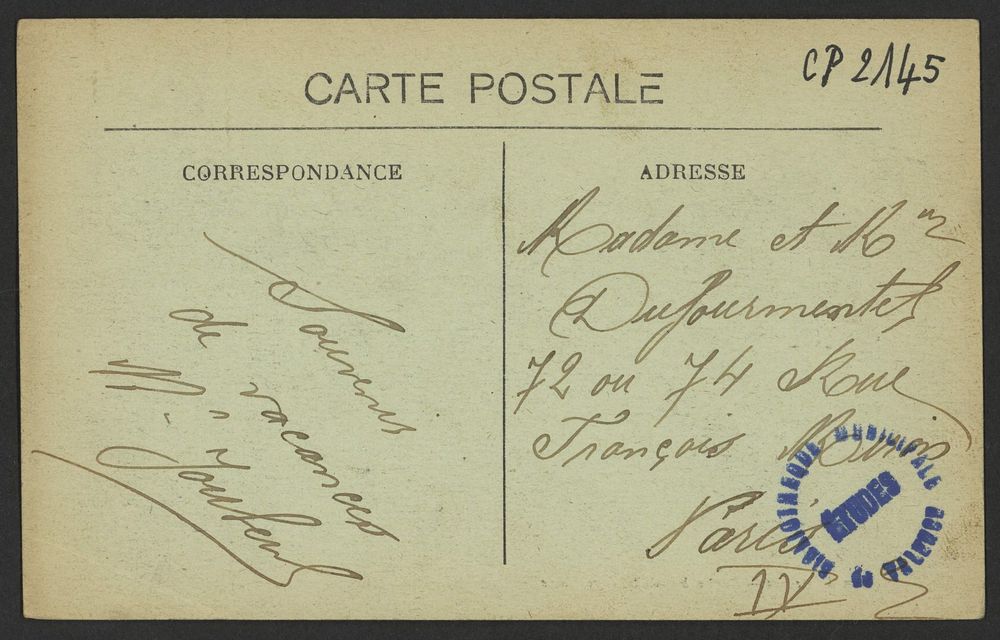 CP 2145
CARTE POSTALE
CORRESPONDANCE
Souvenir
de vacances
ADRESSE
Madame et Mr
Dufourmentel
72 ou 74 Rue
François Miron
Paris
IV
BIBLIOTHEQUE MUNICIPALE
ÉTUDES